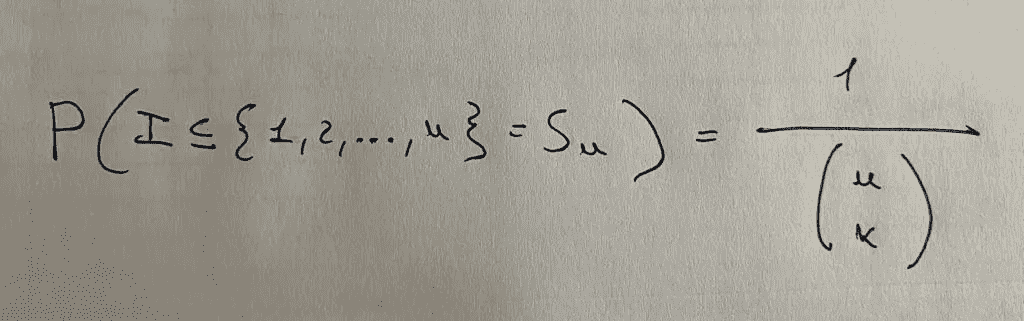 P(I ⊆ {1,2,...,n} = Sn) = 1/(n k)